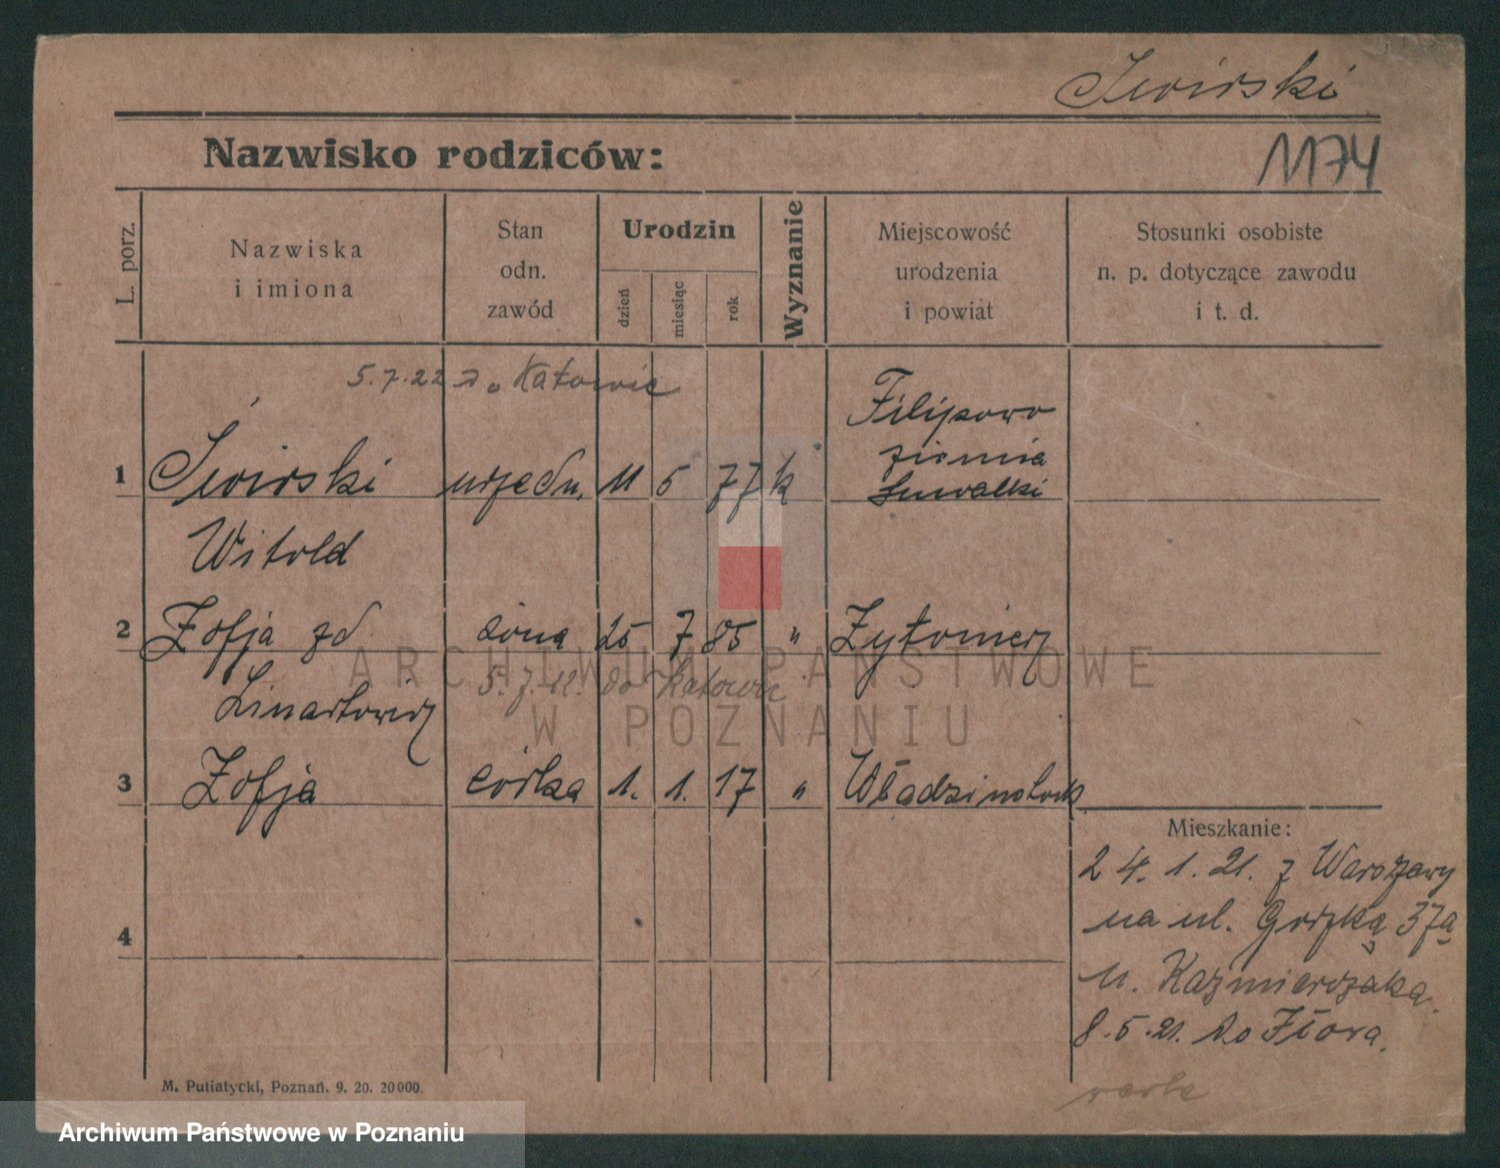 Świrski
1174
Nazwisko rodziców:
L. porz.
Nazwiska
i imiona
Stan
odn.
zawód
Urodzin
dzień
miesiąc
rok
Wyznanie
Miejscowość
urodzenia
i powiat
Stosunki osobiste
n. p. dotyczące zawodu
i t. d.
5.7.22 do Katowic
1 Świrski urzędn. 11 5 77 k Filipowo
ziemia
Suwalki
Witold
2 Zofja zd żona 25 7 85 " Żytomierz
5.7.22. do Katowic
3 Zofja córka 1. 1. 17 "
Mieszkanie:
24.1.21. z Warszawy
na ul. 37a
u. Kazmierczaka.
8.5.21. do
4
M. Putiatycki, Poznań. 9. 20. 20000.
ARCHIWUM PAŃSTWOWE
W POZNANIU
Archiwum Państwowe w Poznaniu